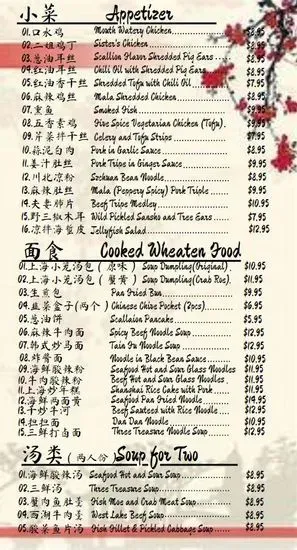 小菜 Appetizer
01.口水鸡 Mouth Watery Chicken $8.95
02.二姐鸡丁 Sister's Chicken $8.95
03.葱油耳丝 Scallion Flavor Shredded Pig Ears $8.95
04.红油耳丝 Chili Oil with Shredded Pig Ears $8.95
05.红油香干丝 Shredded Tofu with Chili Oil $7.95
06.麻辣鸡丝 Mala Shredded Chicken $8.95
07.熏鱼 Smoked Fish $9.95
08.五香素鸡 Five Spice Vegetarian Chicken (Tofu) $9.95
09.芹菜拌干丝 Celery and Tofu Strips $7.95
10.蒜泥白肉 Pork in Garlic Sauce $8.95
11.姜汁肚丝 Pork Tripe in Ginger Sauce $9.95
12.川北凉粉 Sechuan Bean Noodle $8.95
13.麻辣肚丝 Mala (Peppery Spicy) Pork Triple $9.95
14.夫妻肺片 Beef Tripe Medley $10.95
15.野三椒木耳 Wild Pickled Sansho and Tree Ears $7.95
16.凉拌海蜇皮 Jellyfish Salad $12.95
面食 Cooked Wheaten Food
01.上海小龙汤包 ( 原味 ) Soup Dumpling(Original) $10.95
02.上海小龙汤包 ( 蟹黄 ) Soup Dumpling(Crab Roe) $11.95
03.生煎包 Pan Fried Bun $9.95
04.韭菜盒子(两个) Chinese Chive Pocket (2pcs) $6.95
05.葱油饼 Scallaion Pancake $5.95
06.麻辣牛肉面 Spicy Beef Noodle Soup $12.95
07.韩式炒马面 Tain Fu Noodle Soup $12.95
08.炸酱面 Noodle in Black Bean Sauce $10.95
09.海鲜酸辣粉 Seafood Hot and Sour Glass Noodles $11.95
10.牛肉酸辣粉 Beef Hot and Sour Glass Noodles $11.95
11.上海炒年糕 Shanghai Rice Cake with Pork $11.95
12.海鲜两面黄 Seafood Pan Fried Noodle $14.95
13.干炒牛河 Beef Sauteed with Rice Noodle $12.95
14.担担面 Dan Dan Noodle $10.95
15.三鲜打卤面 Three Treasure Noodle Soup $12.95
汤类 (两人份) Soup for Two
01.海鲜酸辣汤 Seafood Hot and Sour Soup $8.95
02.三鲜汤 Three Treasure Soup $8.95
03.蟹肉鱼肚羹 Fish Moe and Crab Meat Soup $8.95
04.西湖牛肉羹 West Lake Beef Soup $8.95
05.酸菜鱼片汤 Fish Fillet & Pickled Cabbage Soup $8.95